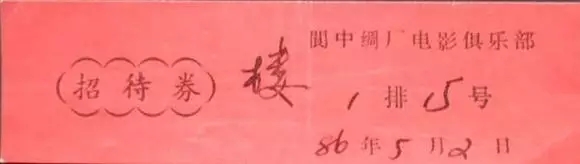 閬中绸厂电影俱乐部
招待券
楼
1排15号
86年5月2日